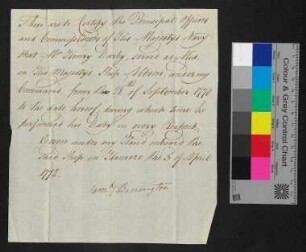 These are to Certify the Principal Officers
and Commissioners of His Majesty's Navy
that Mr Henry Darby served as Mate
on His Majestys Ship Albion under my
Command, from the 28th of September 1770
to the date hereof during which time he
performed his Duty in every Respect,
Given under my Hand onboard the
Said Ship in the 3 of April
1772.
Colour & Grey Control Chart